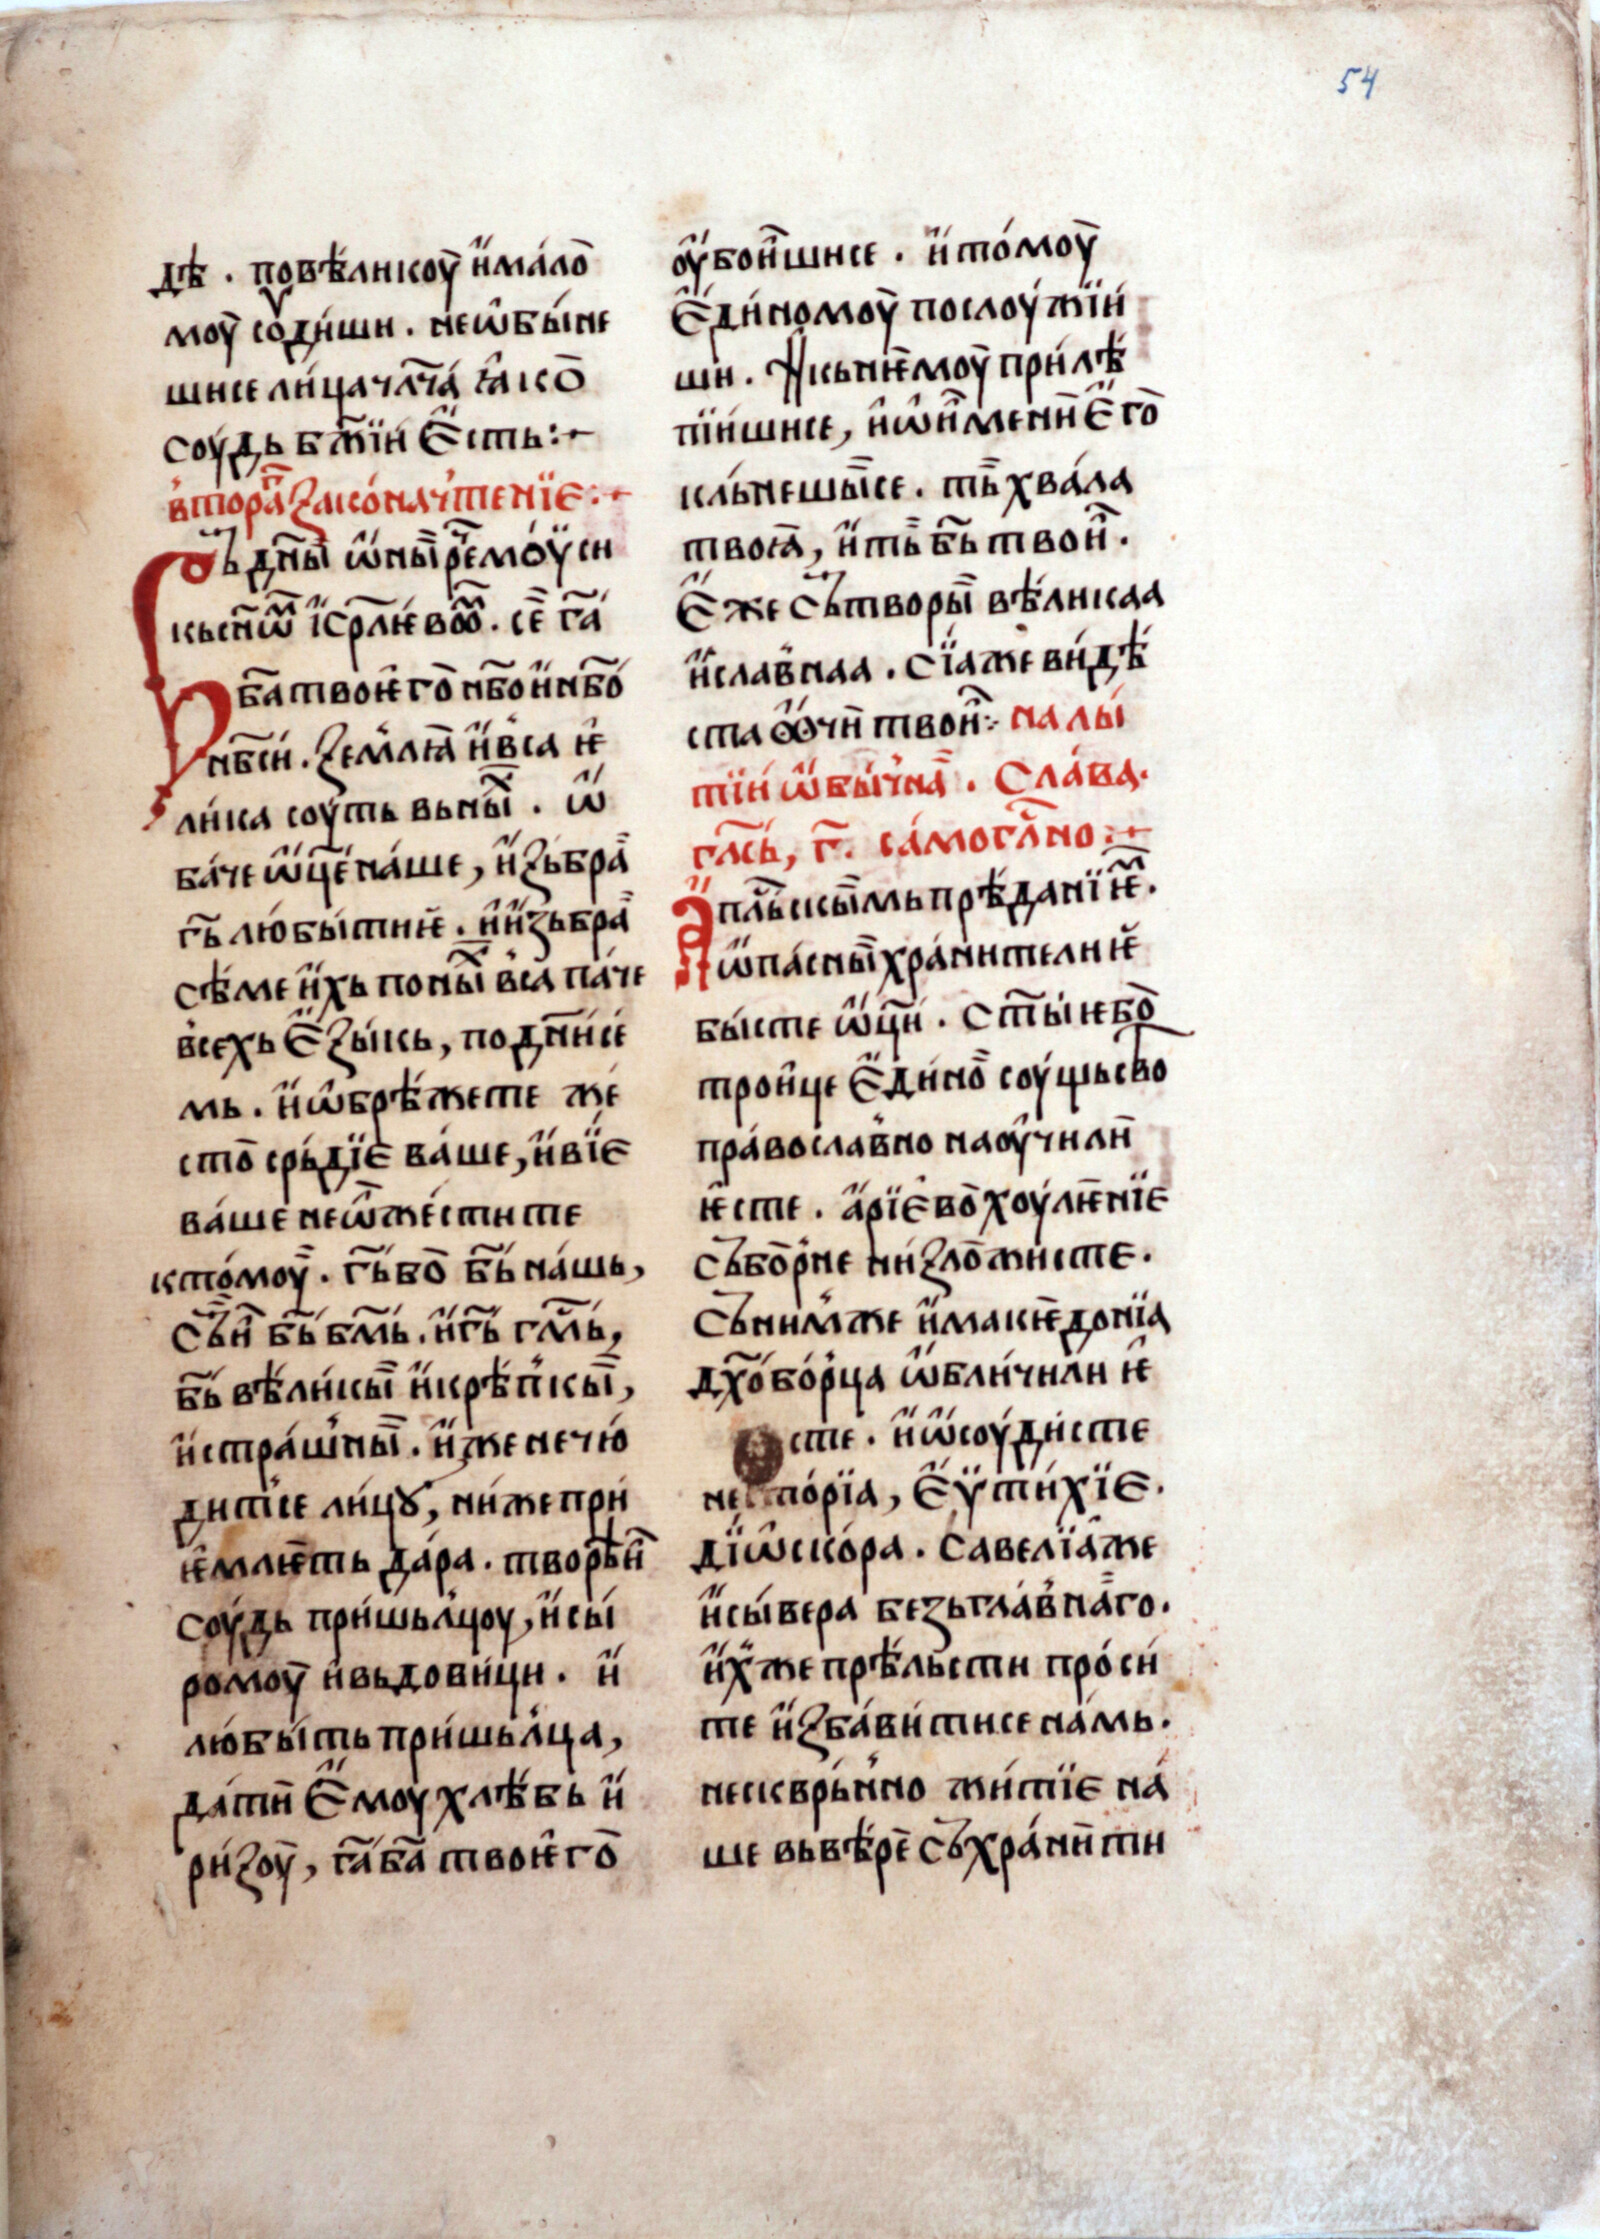 54
дѣ . повѣликоу҆ и҆мало
моу҆ соу́диши . неѡ҆бы́не
шисе ли́ца чл҃ча́ ꙗ҆ко
соу́дь бж҃їи Є҆сть :~
в̾тора̑ꙁако́на ч̾тенїе :~
Въ дн҃ы ѡ҆ны̑ рѐ мо́ѵ̈си
кьсн҃ѡⷨ і҆сри҃лѥвоⷨ . сѐ гⷭ҇а
ба҃ твоѥ҆го нб҃о и҆нб҃о́
нбⷭ҇и . ꙁемлꙗ̀ и҆в̾са ѥ҆
ли́ка соу́ть вьны́ⷯ . ѡ҆
ба́че ѡ҆ц҃е́ на́ше , и҆ꙁьбра̀
гⷭ҇ь лю́бы́тиѥ҆ . и҆и҆ꙁьбра̀
сѣ́ме и҆хь поны́ⷯ в̾са па́че
в̾сехь Є҆ꙁы́кь , подн҃и́се
мь . и҆ѡ҆брѣ́жете же́
сто ср҄ьдїе ва́ше , и҆вїе
ва́ше неѡ҆же́стите
кто́моу҆ . гⷭ҇ь́во бг҃ь на́шь ,
Съи҆ бг҃ь бг҃ѡмь . и҆гⷭ҇ь гⷭ҇мь ,
бг҃ь вѣ́ли́кы̑ и҆крѣ́п̾кы̑ ,
и҆стра́ш̾ны̑ . и҆же не чю́
дит̾се ли́цꙋ , ни́же при
ѥ҆млѥть да́ра . творѣ̀и҆
соу́дь при́шьл̾цоу , и҆сы́
ромоу҆ и҆вьдови́ци . и҆
лю́бы́ть при́шьл̾ца ,
да́ти Є҆моу хлѣ́бь и҆
ри́ꙁоу҆ , гⷭ҇а ба҃ твоѥ҆го
оу҆бои҆шисе . и҆то́моу҆
Є҆ди́номоу҆ послоу́жїи́
ши . И҆кьнѥмоу҆ при́лѣ́
пїи́шисе , и҆ѡ҆и҆мени Є҆го
кль́нешы̑се . ть̀ хва́ла
твоꙗ̀ , и҆ть̀ бг҃ь твои҆ .
Є҆же Сътворы̑ вѣ́ликаа
и҆слав̾наа . Сїаже ви́дѣ́
ста ѻ҆чи твои҆ :· на лы́
тїи́ ѡ҆бы́ч̾на̑ . Сла́ва .
глⷭ҇ь , г҃ . са́могл҃но :~
Ап҃льскы̑мь прѣ́данїѥⷨ .
ѡ҆па́сны̑ хра́нителиѥ҆
бы́сте ѡ҆ц҃и́ . Ст҃ы́ѥбо
трои҆це Є҆ди́но̀ соу́щьство
пра́вославно наоу҆чили
ѥ҆сте . а҆рїе́во хоу́лѥнїе
Събо́р̾не ни́ꙁло́жисте .
Съним̾же и҆макѥдонїа
дх҃обо́р̾ца ѡ҆бли́чили ѥ҆
сте . и҆ѡ҆соу́дисте
несто́рїа , Є҆ѵ̈ти́хїе .
Дїѡ҆ско́ра . Савелїа́же
и҆сы́вера беꙁьгла́в̾на̑го .
и҆хже прѣ́льсти про́си
те и҆ꙁба́ви́тисе на́мь .
нескврь́н̾но жи́тїе на́
ше вьвѣ́ре Съхра́нити